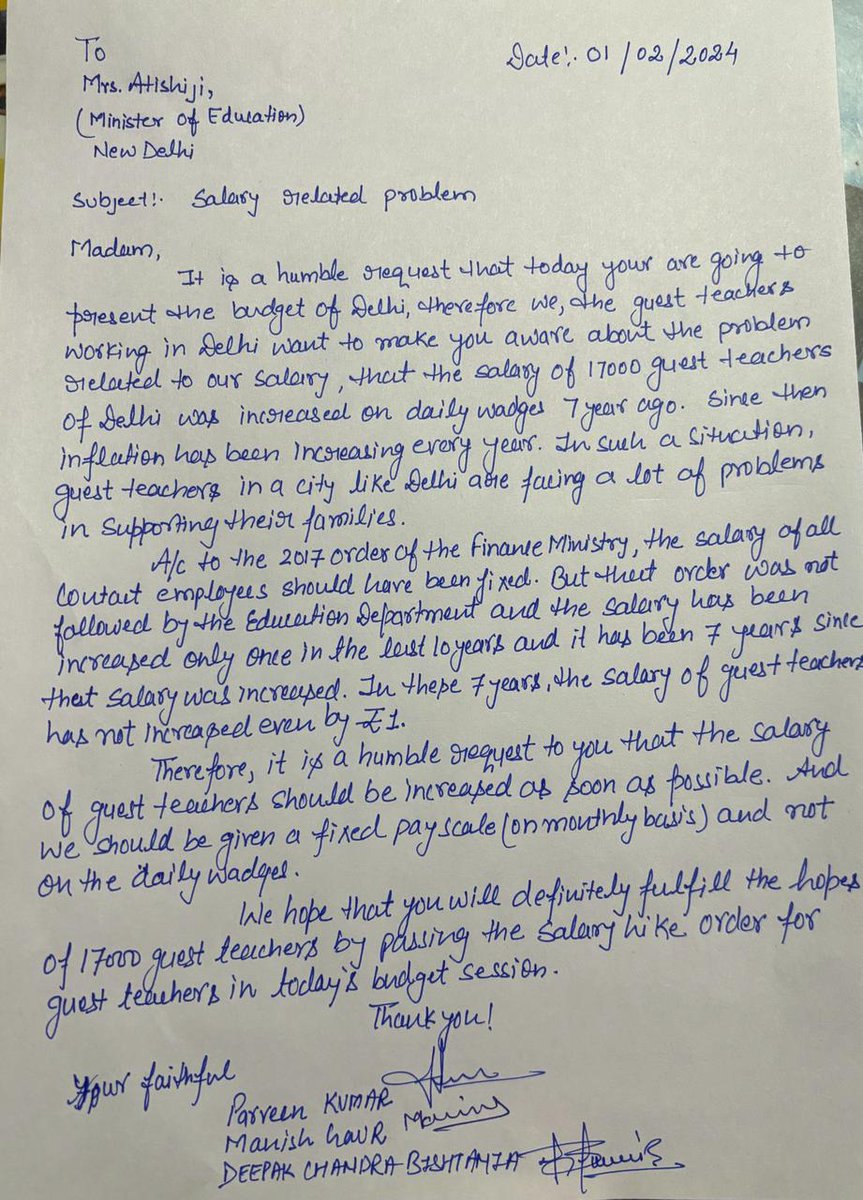 To
Date:. 01/02/2024
Mrs. Atishiji,
(Minister of Education)
New Delhi
Subject:. Salary related problem
Madam,
It is a humble request that today your are going to
present the budget of Delhi, therefore we, the guest teachers
working in Delhi want to make you aware about the problem
related to our salary, that the salary of 17000 guest teachers
of Delhi was increased on daily wadges 7 year ago. Since then
inflation has been increasing every year. In such a situation,
guest teachers in a city like Delhi are facing a lot of problems
in supporting their families.
A/c to the 2017 order of the Finance Ministry, the salary of all
Contact employees should have been fixed. But that order was not
followed by the Education Department and the salary has been
increased only once in the last 10 years and it has been 7 years since
that salary was increased. In these 7 years, the salary of guest teachers
has not increased even by ₹1.
Therefore, it is a humble request to you that the salary
of guest teachers should be increased as soon as possible. And
we should be given a fixed payscale (on monthly basis) and not
on the daily wadges.
We hope that you will definitely fulfill the hopes
of 17000 guest teachers by passing the salary hike order for
guest teachers in today's budget session.
Thank you!
Your faithful
Parveen KUMAR
Manish GAUR
DEEPAK CHANDRA